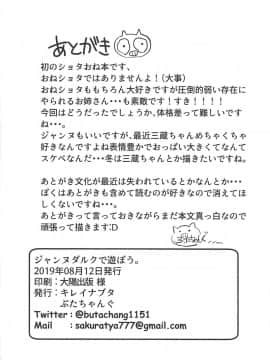 あとがき
初のショタおね本です、
おねショタではありませんよ！(大事)
おねショタももちろん大好きですが圧倒的弱い存在に
やられるお姉さん・・・も素敵です！すき！！！！
今回はどうだったでしょうか、体格差って難しいです
ね・・・。
ジャンヌもいいですが、最近三蔵ちゃんめちゃくちゃ
好きなんですよね表情豊かでおっぱい大きくてなんて
スケベなんだ・・・冬は三蔵ちゃんとか描きたいですね。
あとがき文化が最近は失われているとかなんとか・・・
ぼくはあとがきも含めて読むのが好きなので消えてほ
しくないですね・・・。
あとがきって言っておきながらまだ本文真っ白なので
頑張って描きます:D
ジャンヌダルクで遊ぼう。
2019年08月12日発行
印刷：大陽出版 様
発行：キレイナブタ
ぶたちゃんぐ
Twitter：@butachang1151
Mail ：sakuratya777@gmail.com